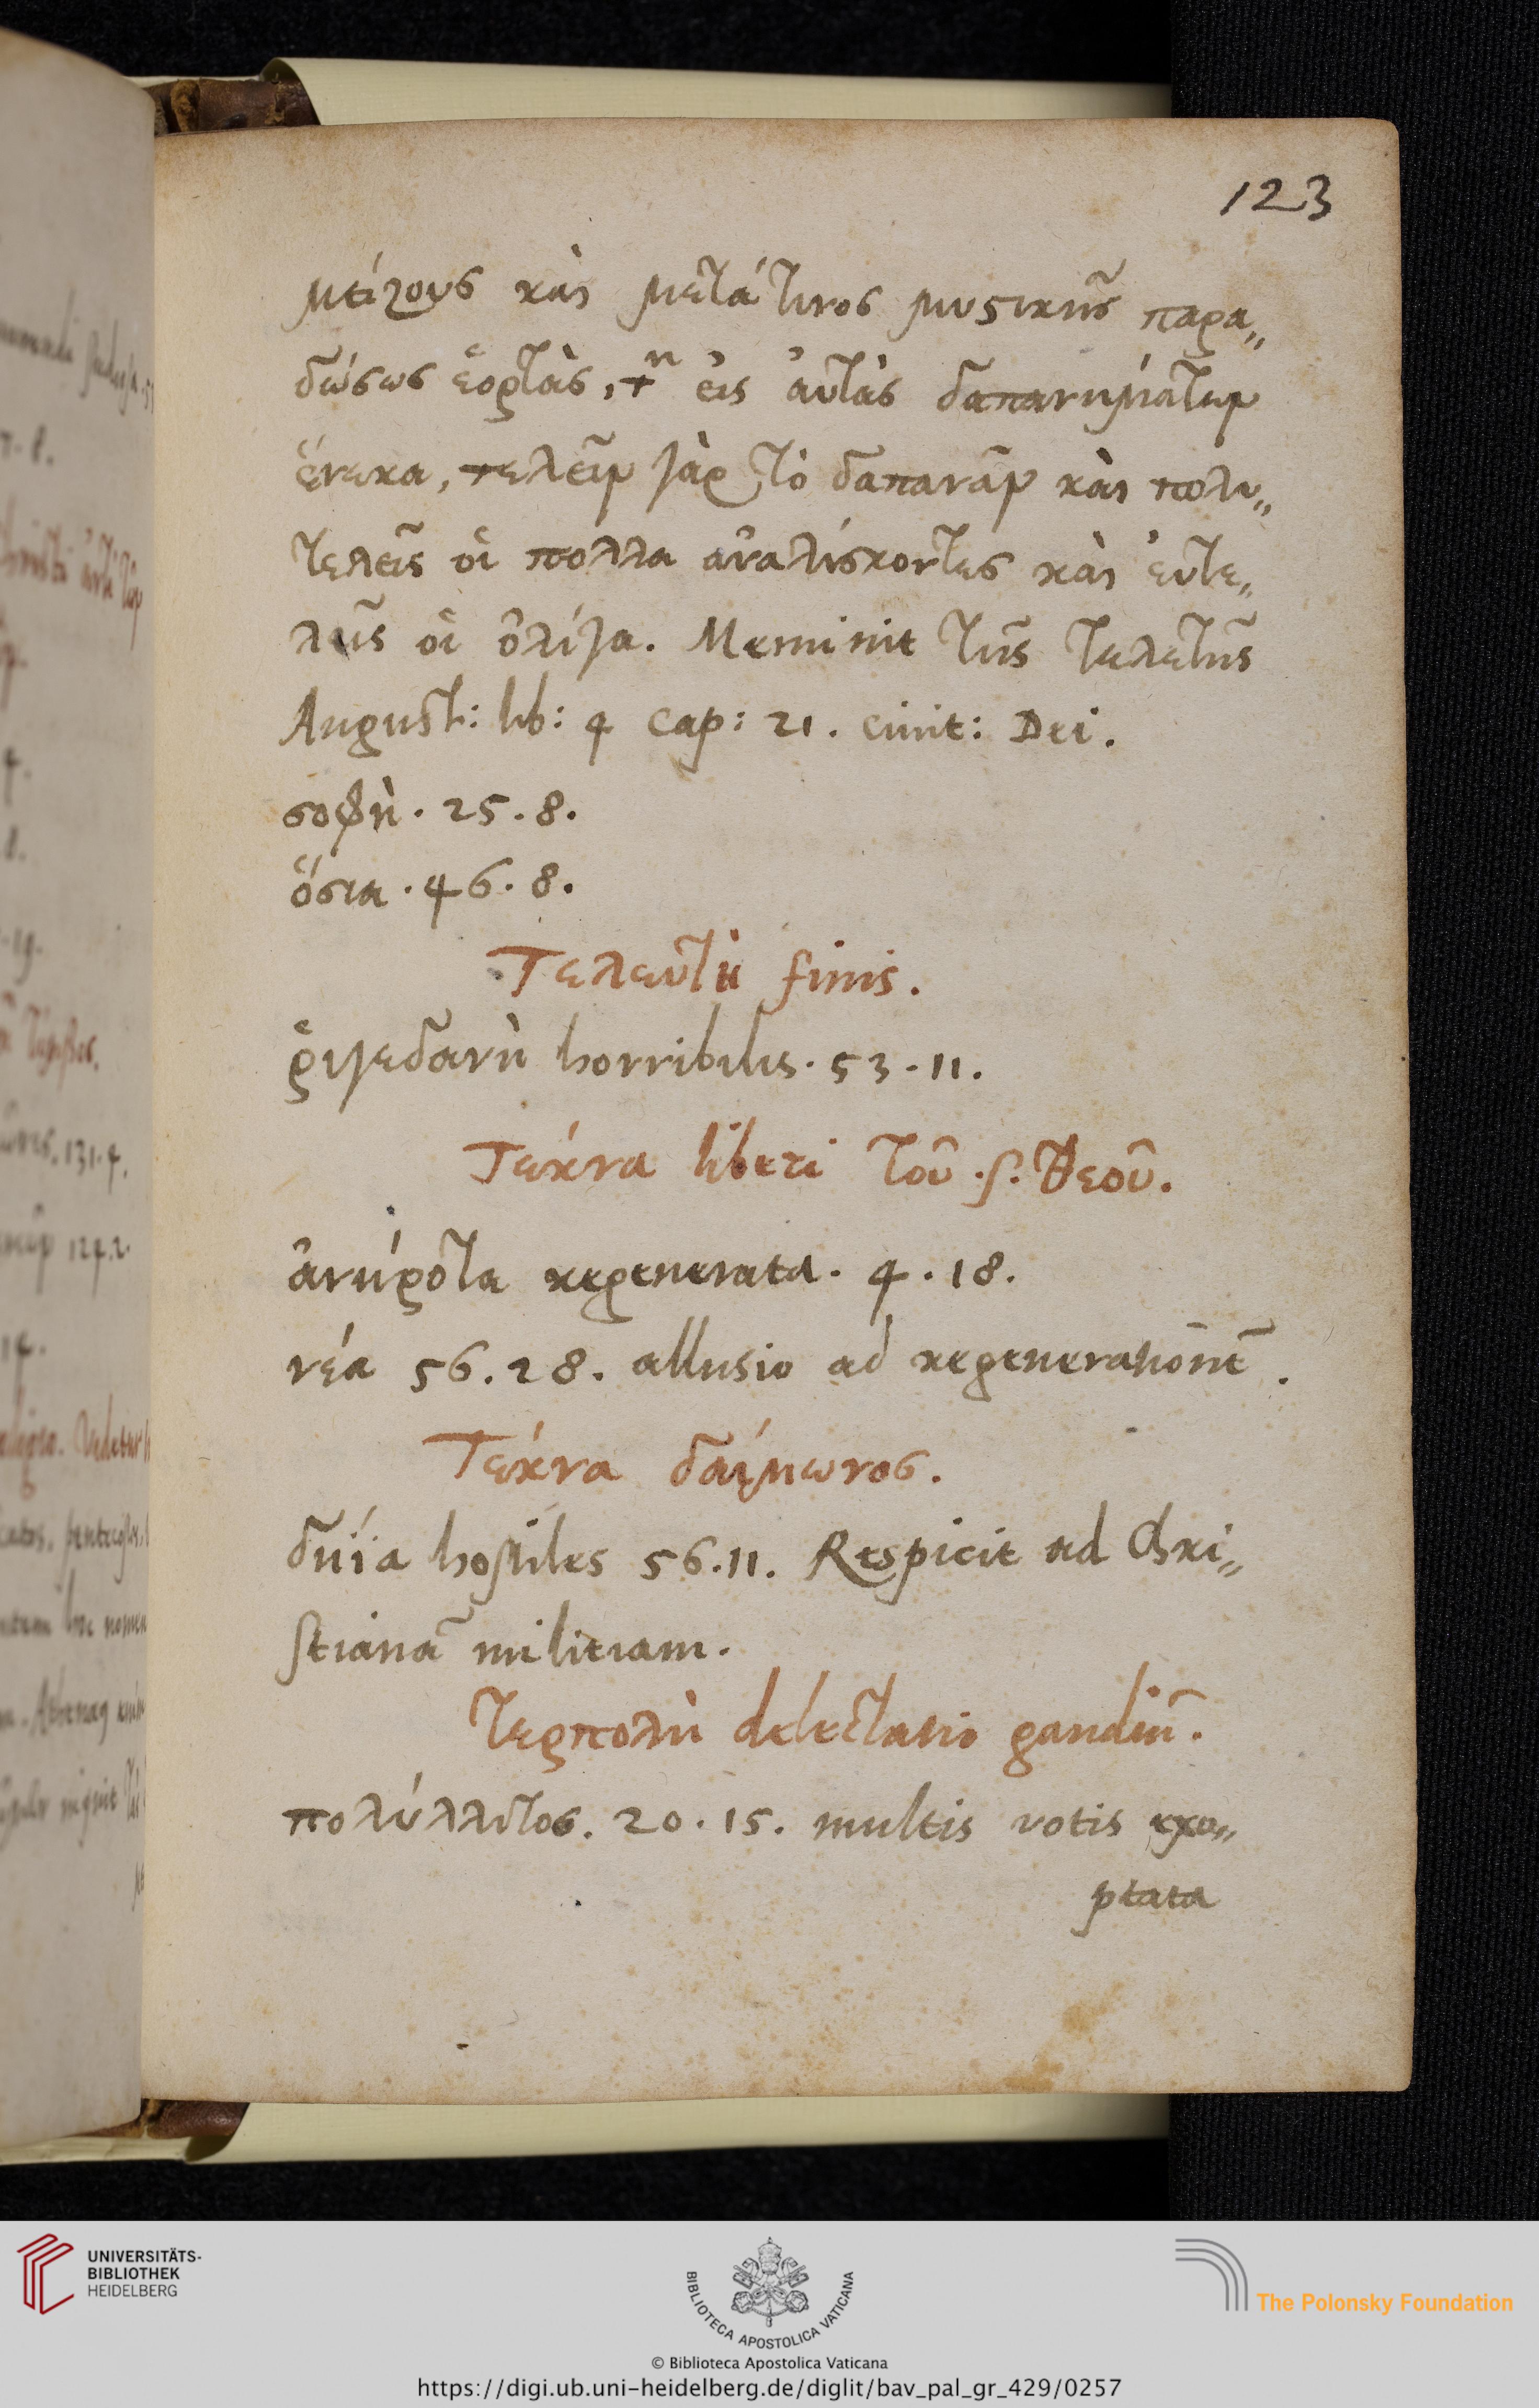 123
μείζους καὶ μετά τινος μυστικῆς παρα„
δώσεως ἑορτὰς, τῶν εἰς αὐτὰς δαπανημάτων
ἕνεκα, τελεῖν γὰρ τὸ δαπανᾶν καὶ πολυ„
τελεῖς οἱ πολλα ἀναλίσκοντες καὶ εὐτε„
λεῖς οἱ ὀλίγα. Meminit τῆς τελετῆς
August: lib: 4 cap: 21. ciuit: Dei.
σοφὴ. 25. 8.
ὅσια. 46. 8.
Τελευτὴ finis.
ῥιγεδανὴ horribilis. 53. 11.
Τέκνα liberi τοῦ .ſ. θεοῦ.
ἀνήροτα regenerata. 4. 18.
νέα 56. 28. allusio ad regenerationē.
Τέκνα δαίμωνος.
δηΐα hostiles 56. 11. Respicit ad Chri„
stianā militiam.
τερπολὴ delectatio gaudiū.
πολύλλιτος. 20. 15. multis votis exo„
ptata
UNIVERSITÄTS-
BIBLIOTHEK
HEIDELBERG
BIBLIOTECA APOSTOLICA VATICANA
The Polonsky Foundation
© Biblioteca Apostolica Vaticana
https://digi.ub.uni-heidelberg.de/diglit/bav_pal_gr_429/0257